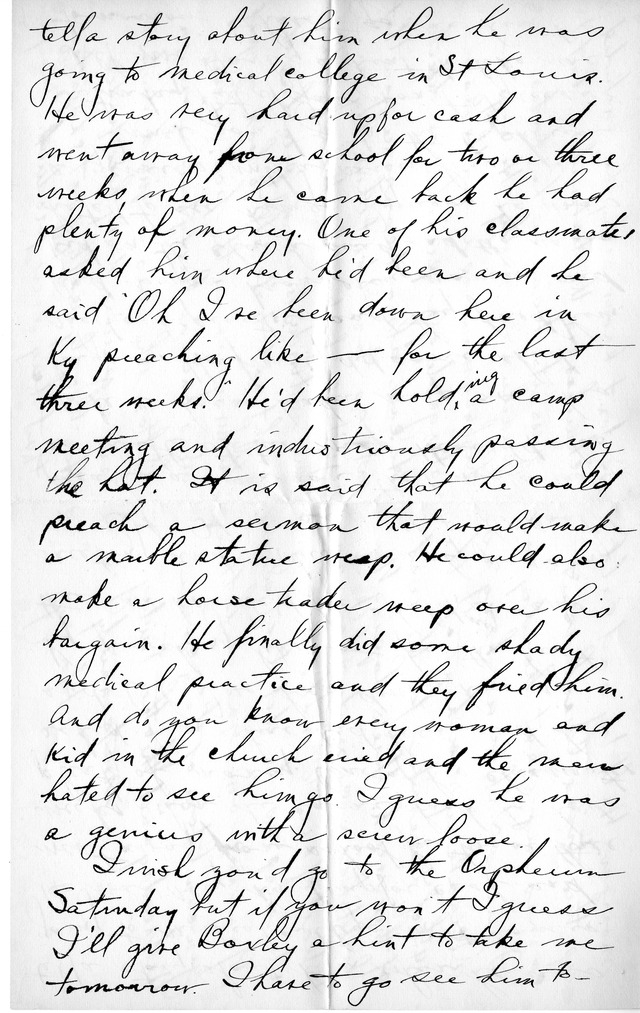 tell a story about him when he was
going to medical college in St Louis.
He was very hard up for cash and
went away from school for two or three
weeks, when he came back he had
plenty of money. One of his classmates
asked him where he'd been and he
said "Oh I've been down here in
Ky preaching like — for the last
three weeks." He'd been holding a camp
meeting and industriously passing
the hat. It is said that he could
preach a sermon that would make
a marble statue weep. He could also
make a horse trader weep over his
bargain. He finally did some shady
medical practice and they fired him.
And do you know every woman and
kid in the church cried and the men
hated to see him go. I guess he was
a genius with a screw loose.
I wish you'd go to the Orpheum
Saturday but if you won't I guess
I'll give Boxley a hint to take me
tomorrow. I have to go see him to-